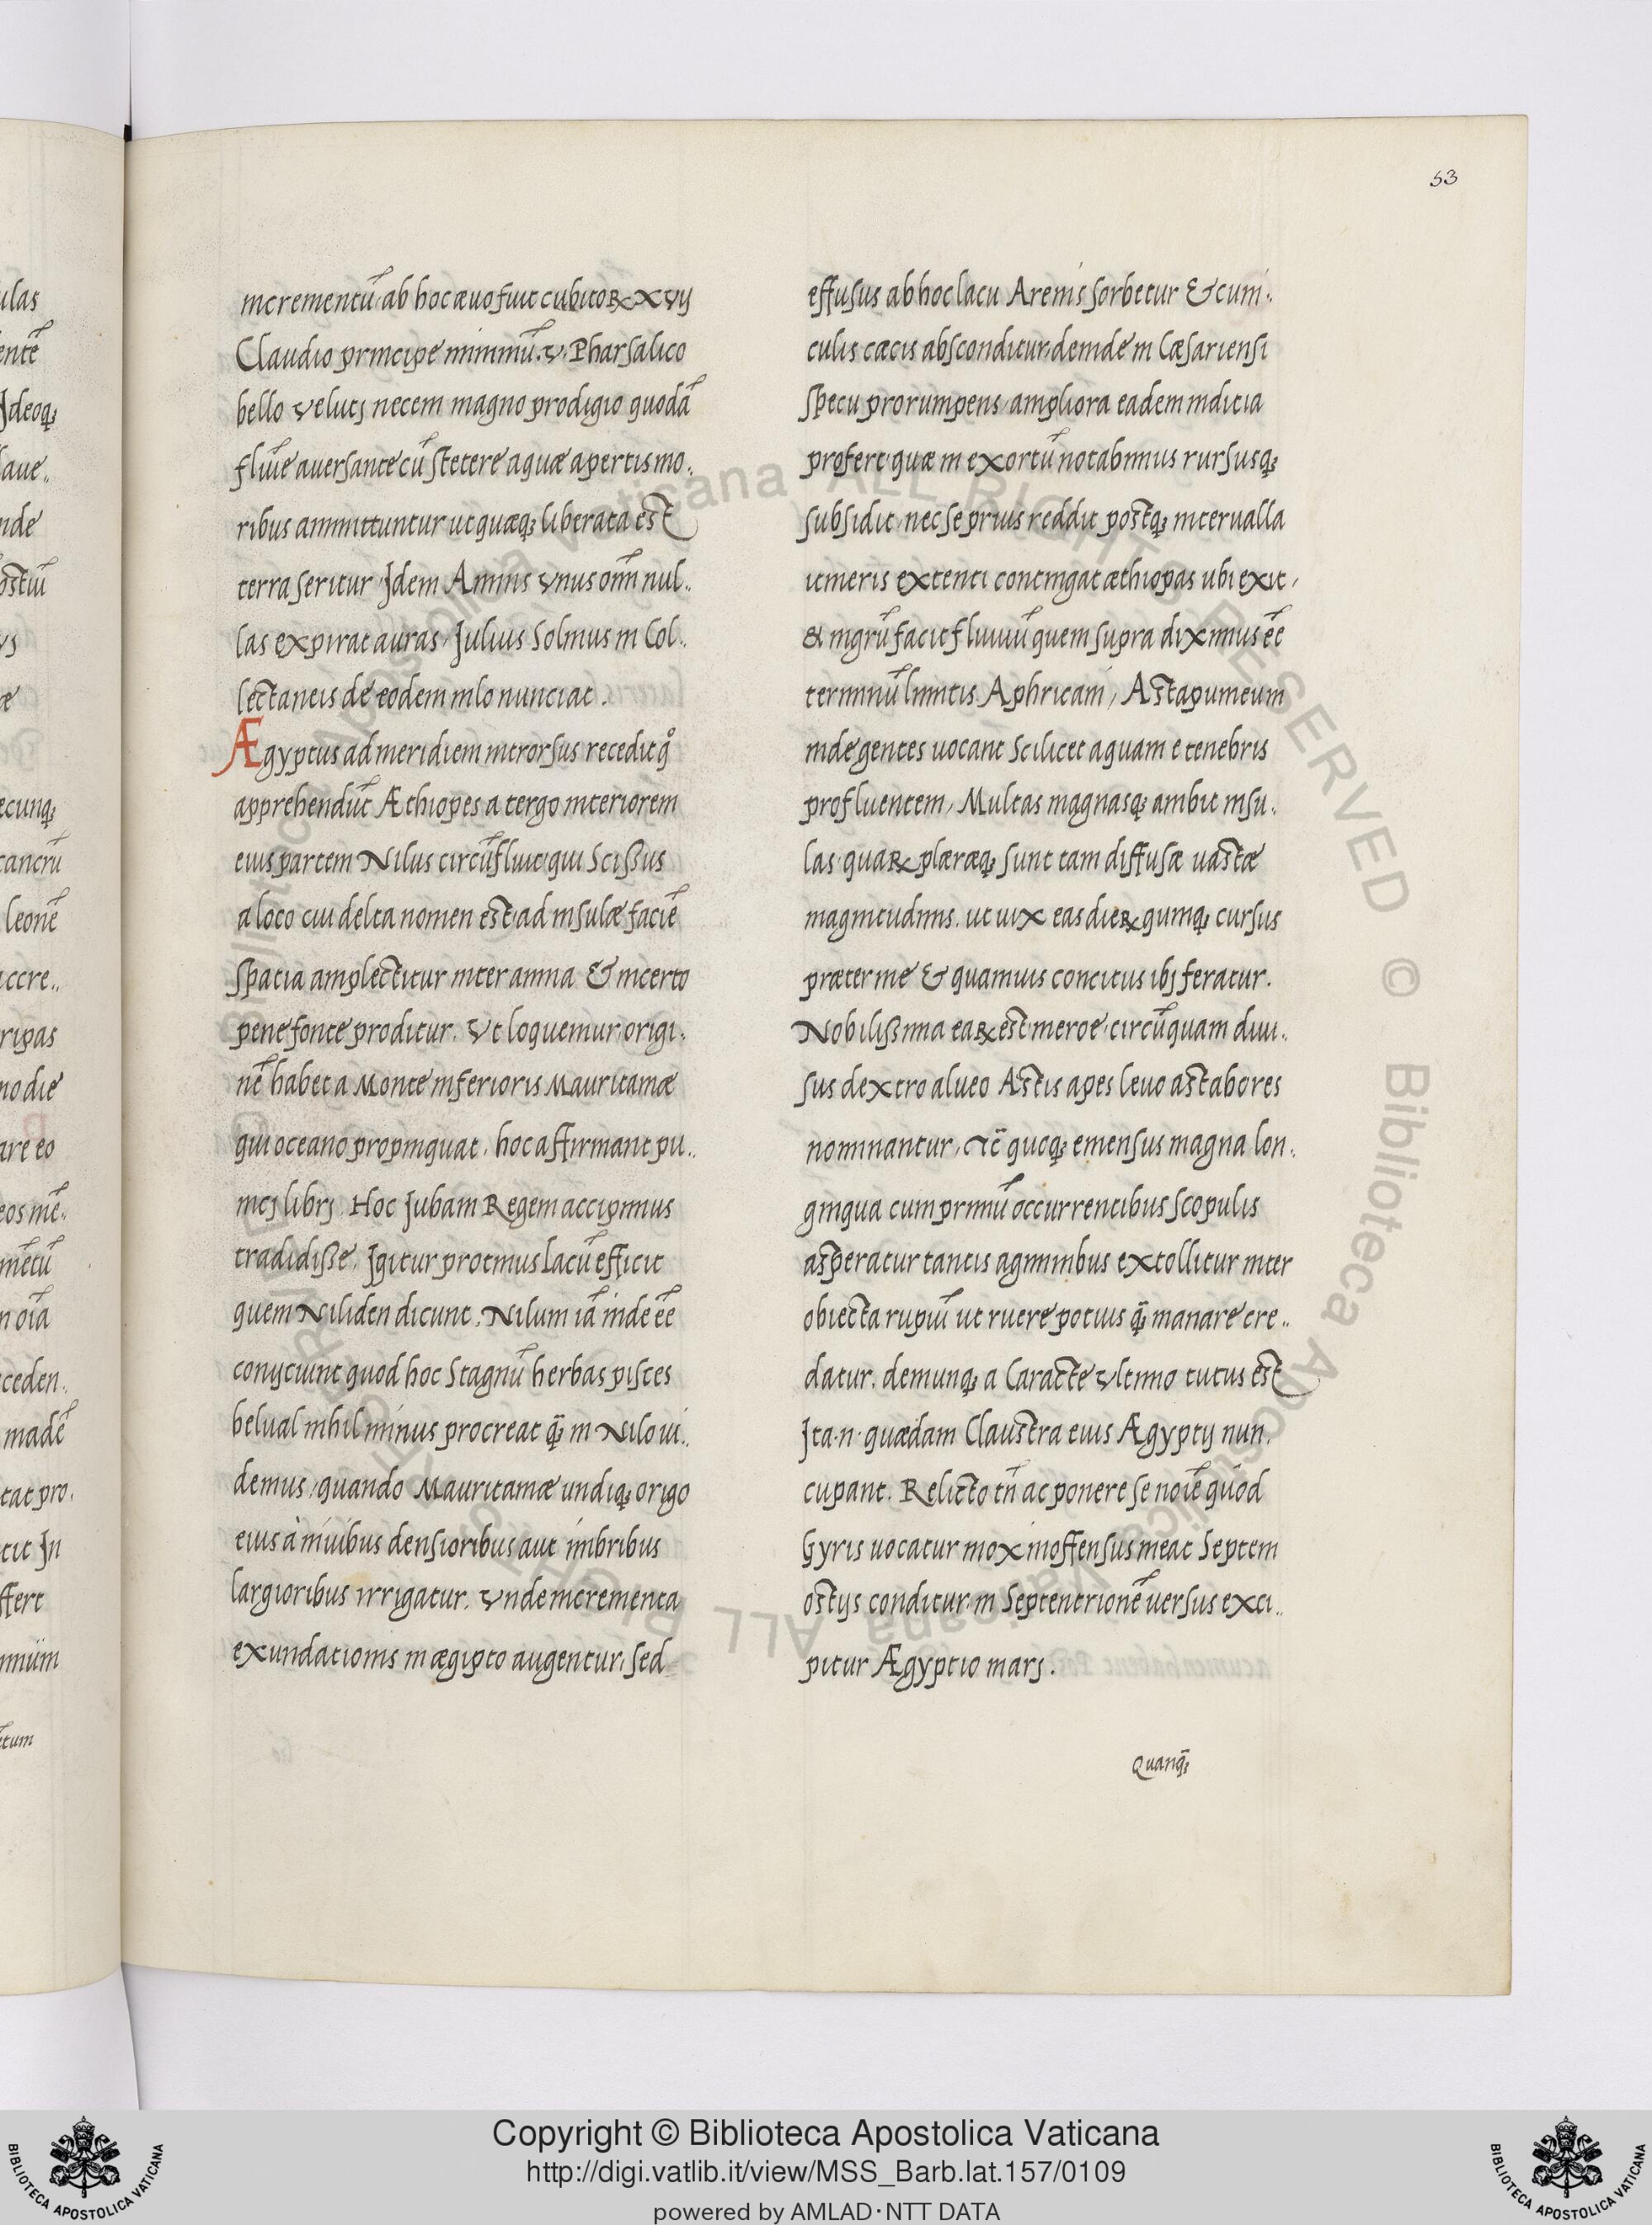 53
incrementũ ab hoc æuo fuit cubitoꝝ XVij
Claudio principe minimũ. V. Pharsalico
bello velutj necem magno prodigio quodã
flũie auersante cũ stetere aquæ apertis mo..
ribus ammittuntur ut quæqꝫ liberata est
terra seritur Jdem Amnis vnus oĩm nul..
las expirat auras, Julius Solinus in Col..
lectaneis de eodem nilo nunciat.
Ægyptus ad meridiem introrsus recedit q̊
apprehendũt Æthiopes a tergo interiorem
eius partem Nilus circũfluit qui Scißus
a loco cui delta nomen est ad insulæ faciẽ
spatia amplectitur inter amna & incerto
pene fonte proditur. Vt loquemur origi..
nẽ habet a Monte inferioris Mauritaniæ
qui oceano propinquat, hoc affirmant pu..
nicj librj. Hoc Jubam Regem accipimus
tradidiße. Jgitur protinus lacũ efficit
quem Niliden dicunt. Nilum iã inde eẽ
conijciunt quod hoc Stagnũ herbas pisces
belual nihil minus procreat q̃ꝫ in Nilo ui..
demus, quando Mauritaniæ undiqꝫ origo
eius à niuibus densioribus aut imbribus
largioribus irrigatur. Vnde incrementa
exundationis in ægipto augentur, sed
effusus ab hoc lacu Arenis sorbetur & cuni..
culis cæcis absconditur, deinde in Cæsariensi
specu prorumpens ampliora eadem inditia
profert quæ in exortũ notabimus rursusqꝫ
subsidit nec se prius reddit postqꝫ interualla
itineris extenti contingat æthiopas ubi exit,
& nigrũ facit fluuiũ quem supra diximus eẽ
terminũ limitis Aphricani, Astapumeum
inde gentes uocant Scilicet aquam e tenebris
profluentem, Multas magnasqꝫ ambit insu.
las quaꝝ plæræqꝫ sunt tam diffusæ uastæ
magnitudinis. ut uix eas dieꝝ quinqꝫ cursus
præterme & quamuis concitus ibj feratur.
Nobilißima eaꝝ est meroe circũ quam diui..
sus dextro alueo Astis apes leuo astabores
nominantur, quoqꝫ emensus magna lon..
ginqua cum primũ occurrentibus scopulis
asperatur tantis agminibus extollitur inter
obiecta rupiũ ut ruere potius q̃ꝫ manare cre..
datur. demunqꝫ a Caracte vltimo tutus est
Jta.n. quædam Claustra eius Ægyptij nun.
cupant. Relicto tñ ac ponere se noiẽ quod
Gyris uocatur mox inoffensus meat Septem
ostijs conditur in Septentrionẽ uersus exci..
pitur Ægyptio marj.
Quanq̃ꝫ
Copyright © Biblioteca Apostolica Vaticana
http://digi.vatlib.it/view/MSS_Barb.lat.157/0109
powered by AMLAD·NTT DATA